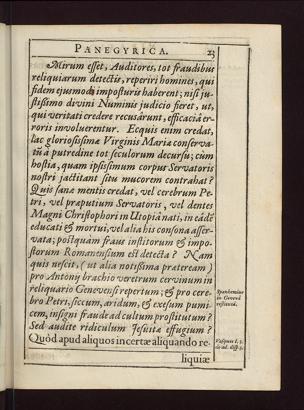 PANEGYRICA. 23
Mirum esset, Auditores, tot fraudibus
reliquiarum detectis, reperiri homines, qui
fidem ejusmodi imposturis haberent; nisi ju-
stissimo divini Numinis judicio fieret, ut,
qui veritati credere recusârunt, efficaciâ er-
roris involuerentur. Ecquis enim credat,
lac gloriosissimæ Virginis Mariæ conserva-
tũ à putredine tot seculorum decursu; cùm
hostia, quam ipsissimum corpus Servatoris
nostri jactitant situ mucorem contrahat?
Quis sanæ mentis credat, vel cerebrum Pe-
tri, vel præputium Servatoris, vel dentes
Magni Christophori in Utopiâ nati, in eâdẽ
educati & mortui, vel alia his consona asser-
vata; postquàm fraus institorum & impo-
storum Romanensium est detecta? Nam
quis nescit, (ut alia notissima præteream)
pro Antony brachio veretrum cervinum in
reliquario Genevensi repertum; & pro cere-
bro Petri, siccum, aridum, & exesum pumi-
cem, insigni fraude ad cultum prostitutum?
Sed audite ridiculum Jesuitæ effugium?
Quòd apud aliquos incertæ aliquando re-
liquiæ
Spanhemius
in Genevâ
restitutâ.
Vasques l. 3.
de ad. disp. 3.